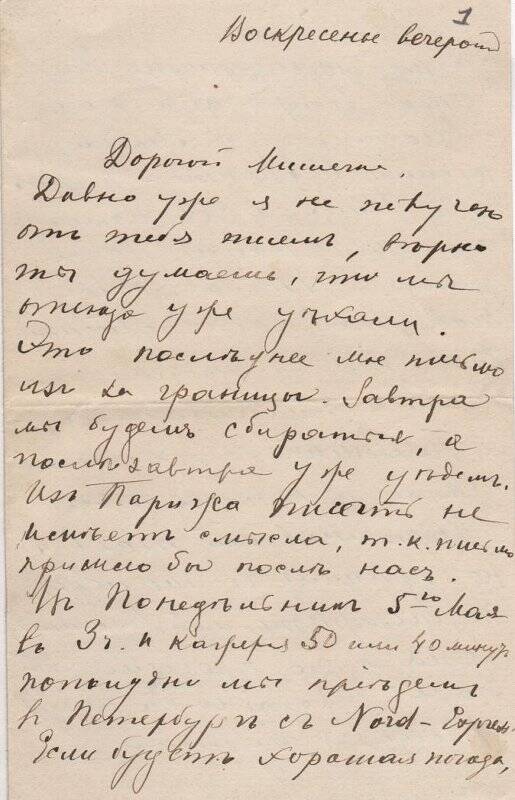 1
Воскресенье вечеромъ
Дорогой Мишечка,
Давно уже я не получаю
отъ тебя писемъ, вѣрно
ты думаешь, что мы
отсюда уже уѣхали.
Это послѣднее мое письмо
изъ за границы. Завтра
мы будемъ сбираться, а
послѣ завтра уже уѣдемъ.
Изъ Парижа писать не
имѣетъ смысла, т.к. письмо
пришло бы послѣ насъ.
Въ Понедѣльникъ 5го Мая
въ 3 ч. и 50 или 40 минутъ
пополудни мы пріѣдемъ
въ Петербургъ съ Nord-Express.
Если будетъ хорошая погода,